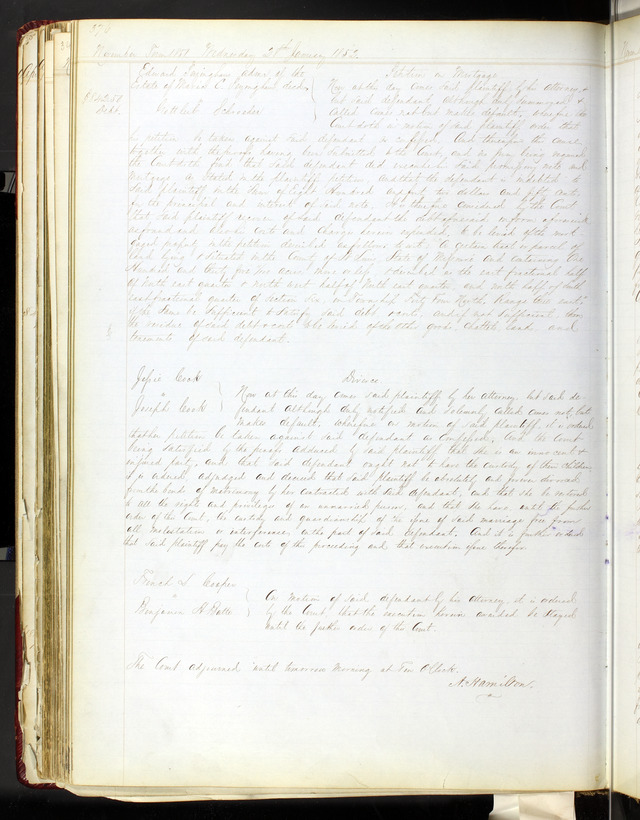 Wednesday 21st January 1852.
Edward administrator of the Petition on Mortgage
Estate of deceased Now at this day comes said plaintiff by his attorney &
but said defendant although duly summoned &
Gottlieb Schroeder called comes not but makes default, wherefore the
Court doth on motion of said plaintiff order that
his petition be taken against said defendant as confessed. And thereupon the cause
together with the having been submitted to the Court, and it been being
the Court doth find that said defendant did
mortgage as stated in the plaintiffs petition and that the defendant is indebted
said plaintiff in the sum of Eight Hundred and ten dollars and fifty cents
for the principal and interest of said note. It is therefore considered by the Court
that said plaintiff recover of said defendant the debt aforesaid in form aforesaid
and also his costs and charges herein expended, to be levied of the mort
gaged property in the petition described as follows to wit. A certain tract or parcel of
land lying & situated in the County of St Louis State of Missouri and containing One
Hundred and acres more or less & described as the east fractional half
of north east quarter & north west half of north east quarter, and north half of south
east fractional quarter of section Six, in Township Forty four North, Range
if the same be sufficient to satisfy said debt & costs, and if not sufficient, then
the residue of said debt & cost to be levied of the other goods, chattels, lands, and
tenements of said defendant.
Jessie Cook Divorce
vs Now at this day comes said plaintiff by her attorney, but said de-
Joseph Cook fendant although duly notified and solemnly called comes not, but
makes default, wherefore on motion of said plaintiff, it is ordered
that her petition be taken against said defendant as confessed. And the Court
being satisfied by the proofs adduced by said plaintiff that she is an innocent &
injured party, and that said defendant ought not to have the custody of their children,
it is ordered, adjudged and decreed that said plaintiff be absolutely and forever divorced
from the bonds of matrimony by her contracted with said defendant, and that she be restored
to all the rights and privileges of an unmarried person. And that she have until the further
order of the Court, the custody and guardianship of the issue of said marriage free from
all molestation or interference on the part of said defendant. And it is further ordered
that said plaintiff pay the costs of this proceeding and that execution issue therefor.
French L Cooper
vs On motion of said defendant by his attorney, it is ordered
Benjamin H by the Court that the execution herein awarded be stayed
until the further order of this Court.
The Court adjourned until tomorrow morning at Ten OClock.
A. Hamilton.